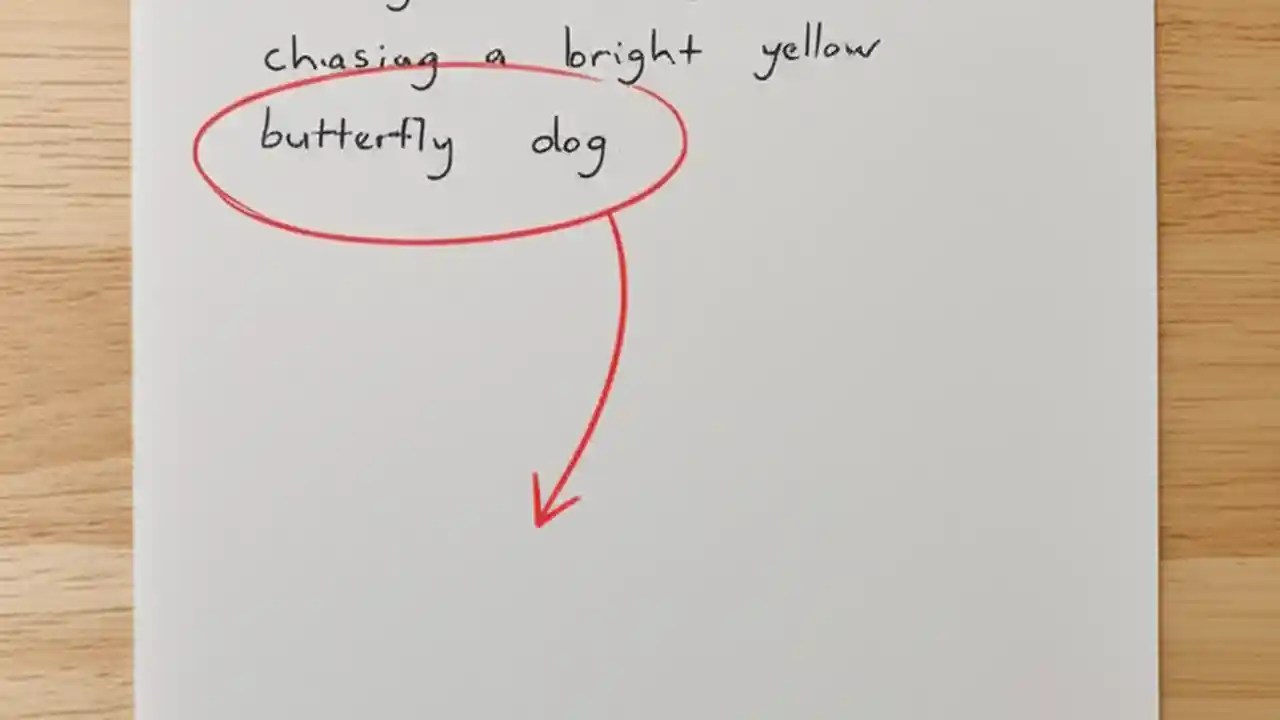 chasing a bright yellow
butterfly dog